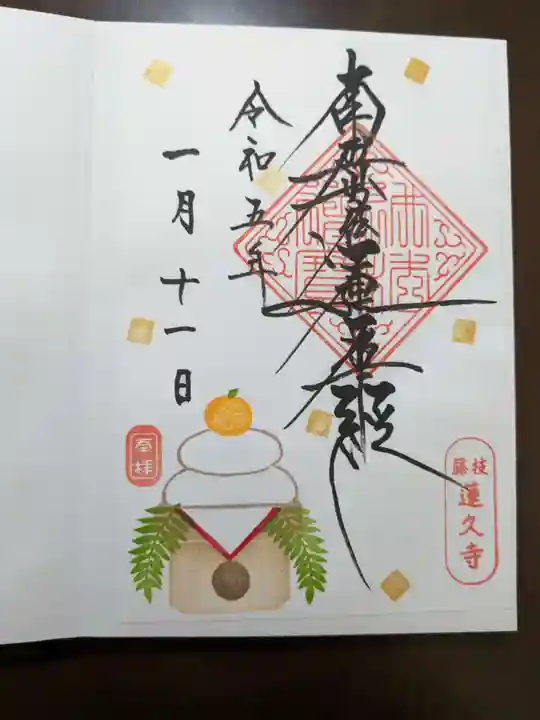 南無妙法蓮華経
令和五年
一月十一日
奉拝
藤枝
蓮久寺